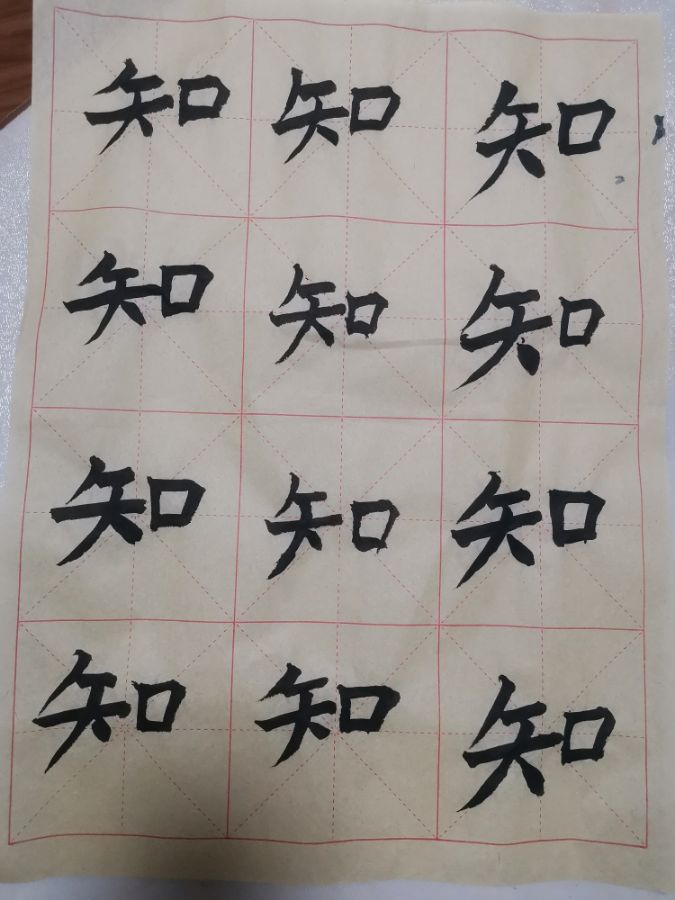 知知知
知知知
知知知
知知知